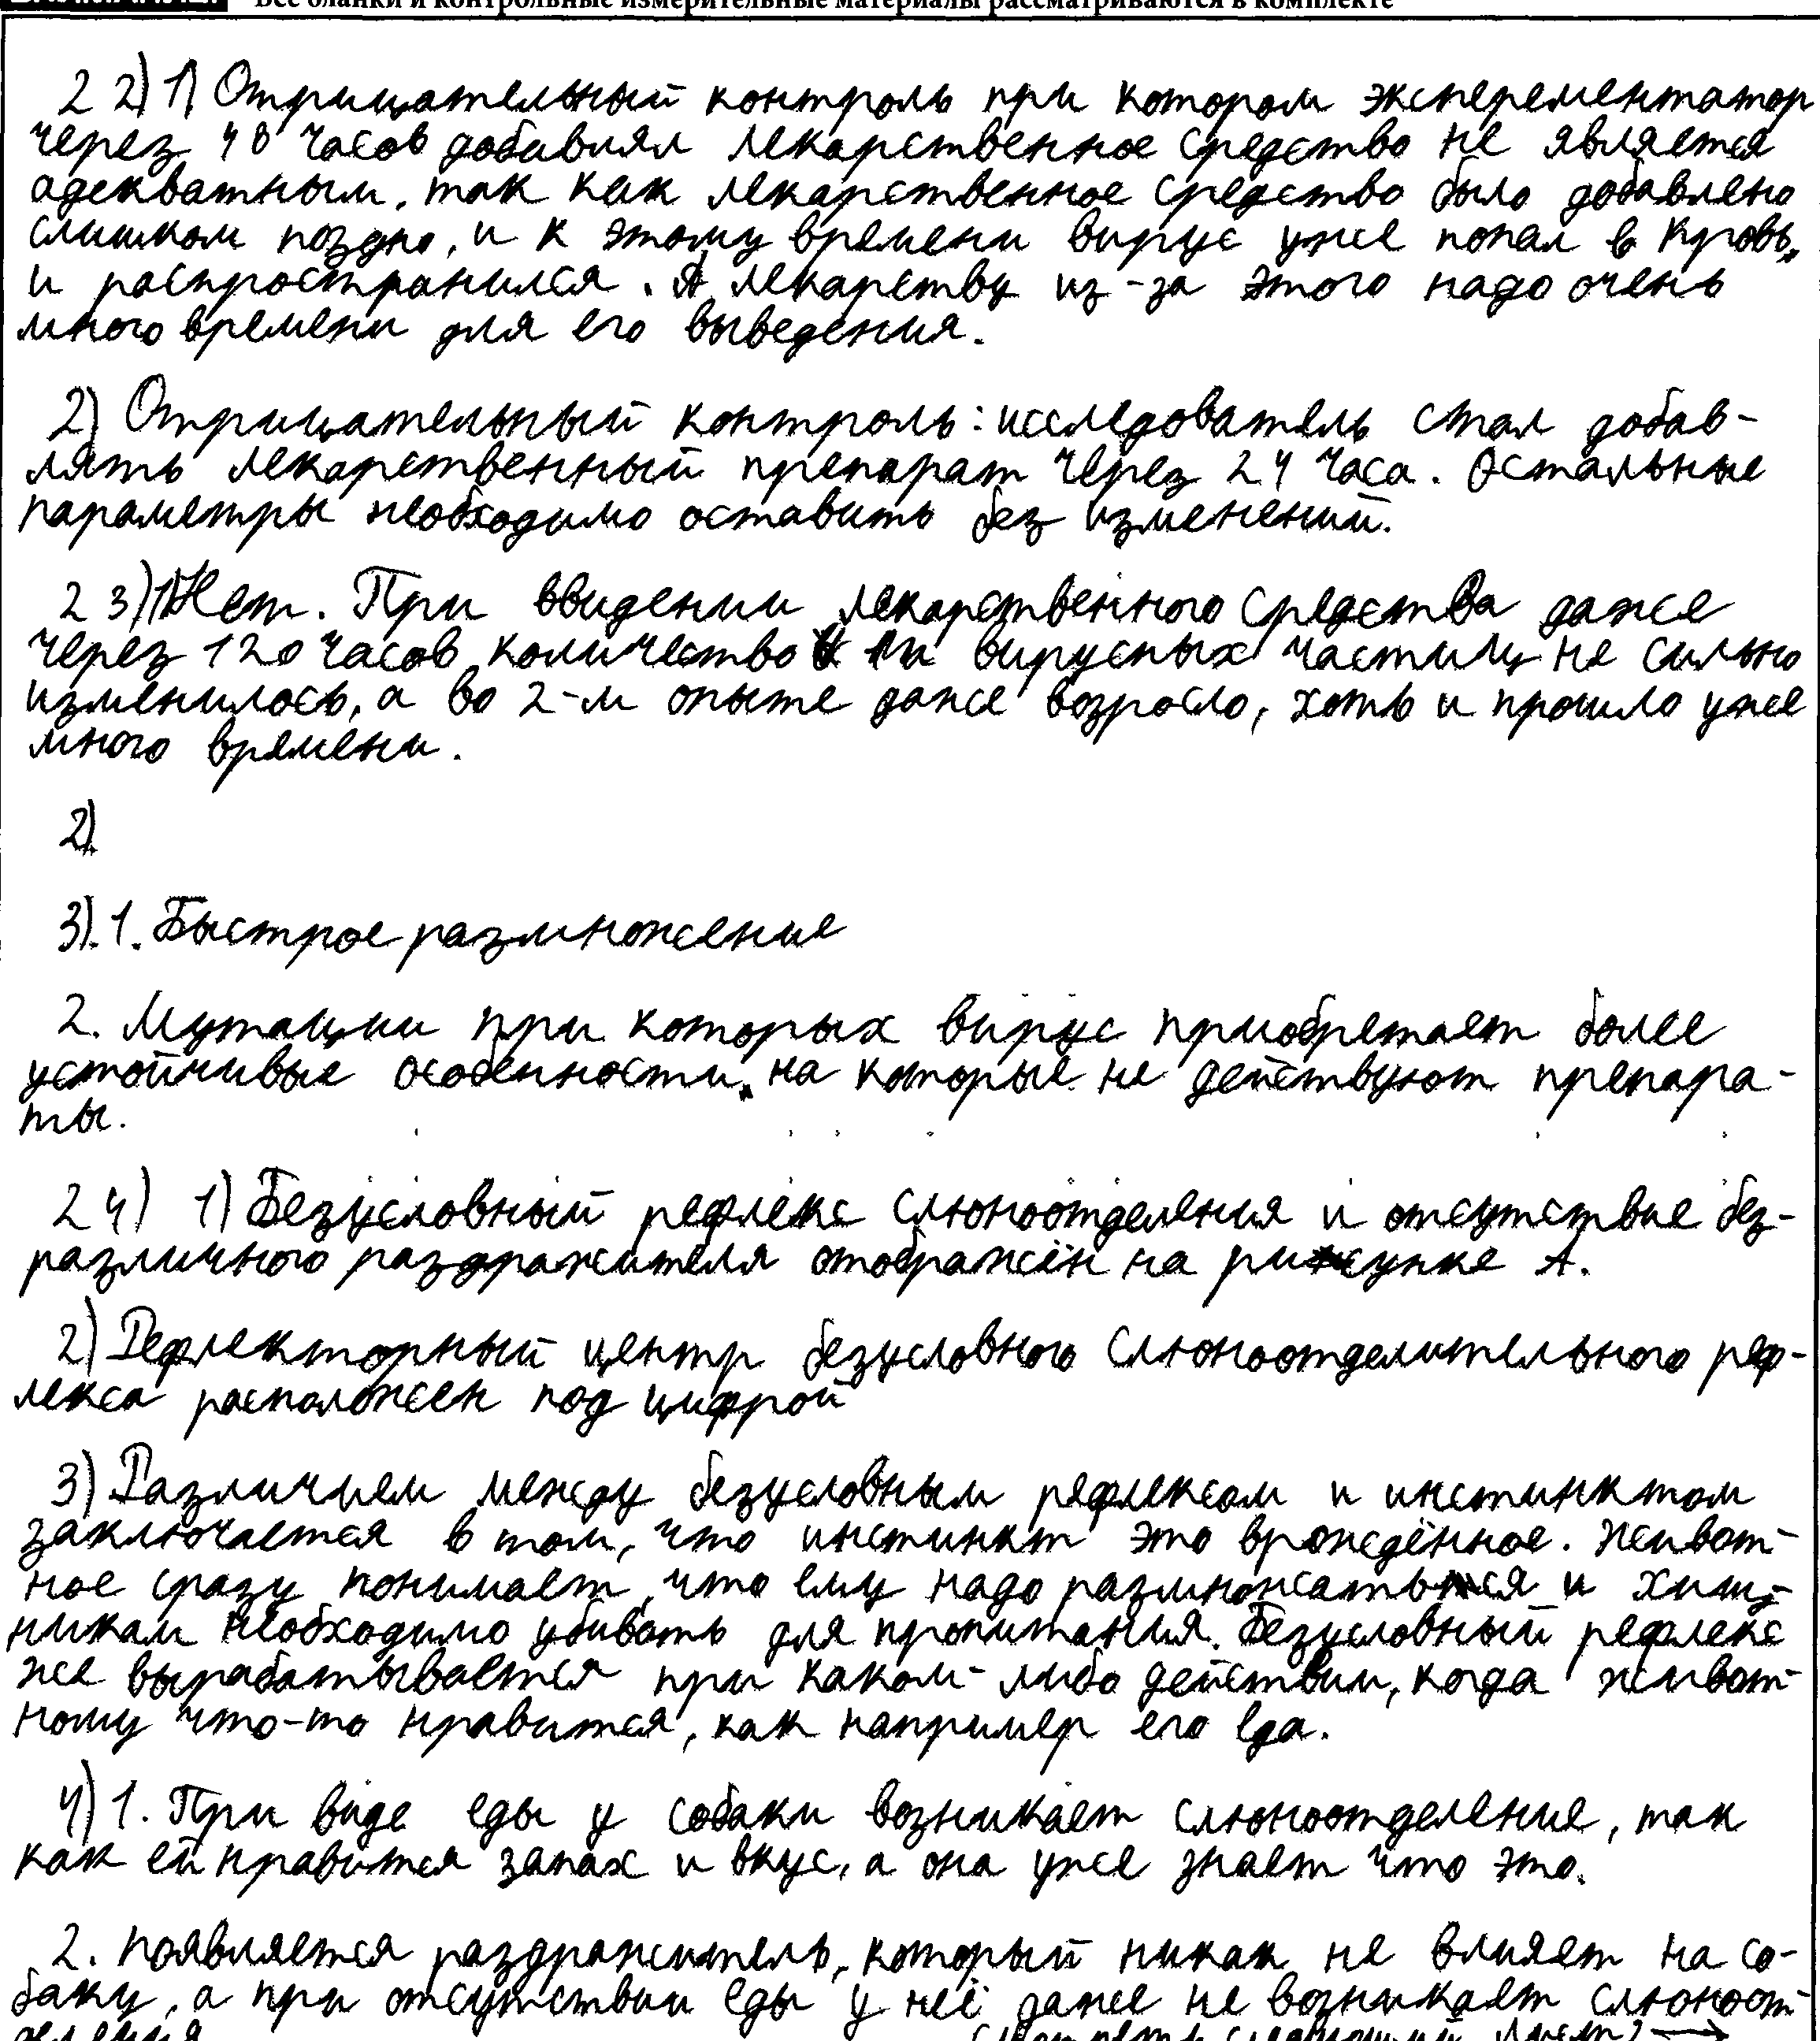 Все бланки и контрольные измерительные материалы рассматриваются в комплекте
22) 1) Отрицательный контроль при котором эксперементатор
через 48 часов добавиял лекарственное средство не является
адекватным, так как лекарственное средство было добавлено
слишком поздно, и к этому времени вирус уже попал в кровь,
и распространился. А лекарству из-за этого надо очень
много времени для его выведения.
2) Отрицательный контроль: исследователь стал добав-
лять лекарственный препарат через 24 часа. Остальные
параметры необходимо оставить без изменений.
23) 1) Нет. При ввидении лекарственного средства даже
через 120 часов количество и вирусных частиц не сильно
изменилось, а во 2-м опыте даже возросло, хоть и прошло уже
много времени.
2)
3). 1. Быстрое размножение
2. Мутации при которых вирус приобретает более
устойчивые особенности, на которые не действуют препара-
ты.
24) 1) Безусловный рефлекс слюноотделения и отсутствие без-
различного раздражителя отображён на рисунке А.
2) Рефлекторный центр безусловного слюноотделительного реф-
лекса расположен под цифрой
3) Различием между безусловным рефлексом и инстинктом
заключается в том, что инстинкт это врождённое. Живот-
ное сразу понимает, что ему надо размножаться и хищ-
никам необходимо убивать для пропитания. Безусловный рефлекс
же вырабатывается при каком-либо действии, когда живот-
ному что-то нравится, как например его еда.
4) 1. При виде еды у собаки возникает слюноотделение, так
как ей нравится запах и вкус, а она уже знает что это.
2. Появляется раздражитель, который никак не влияет на со-
баку, а при отсутствии еды у неё даже не возникает слюноот-
деления